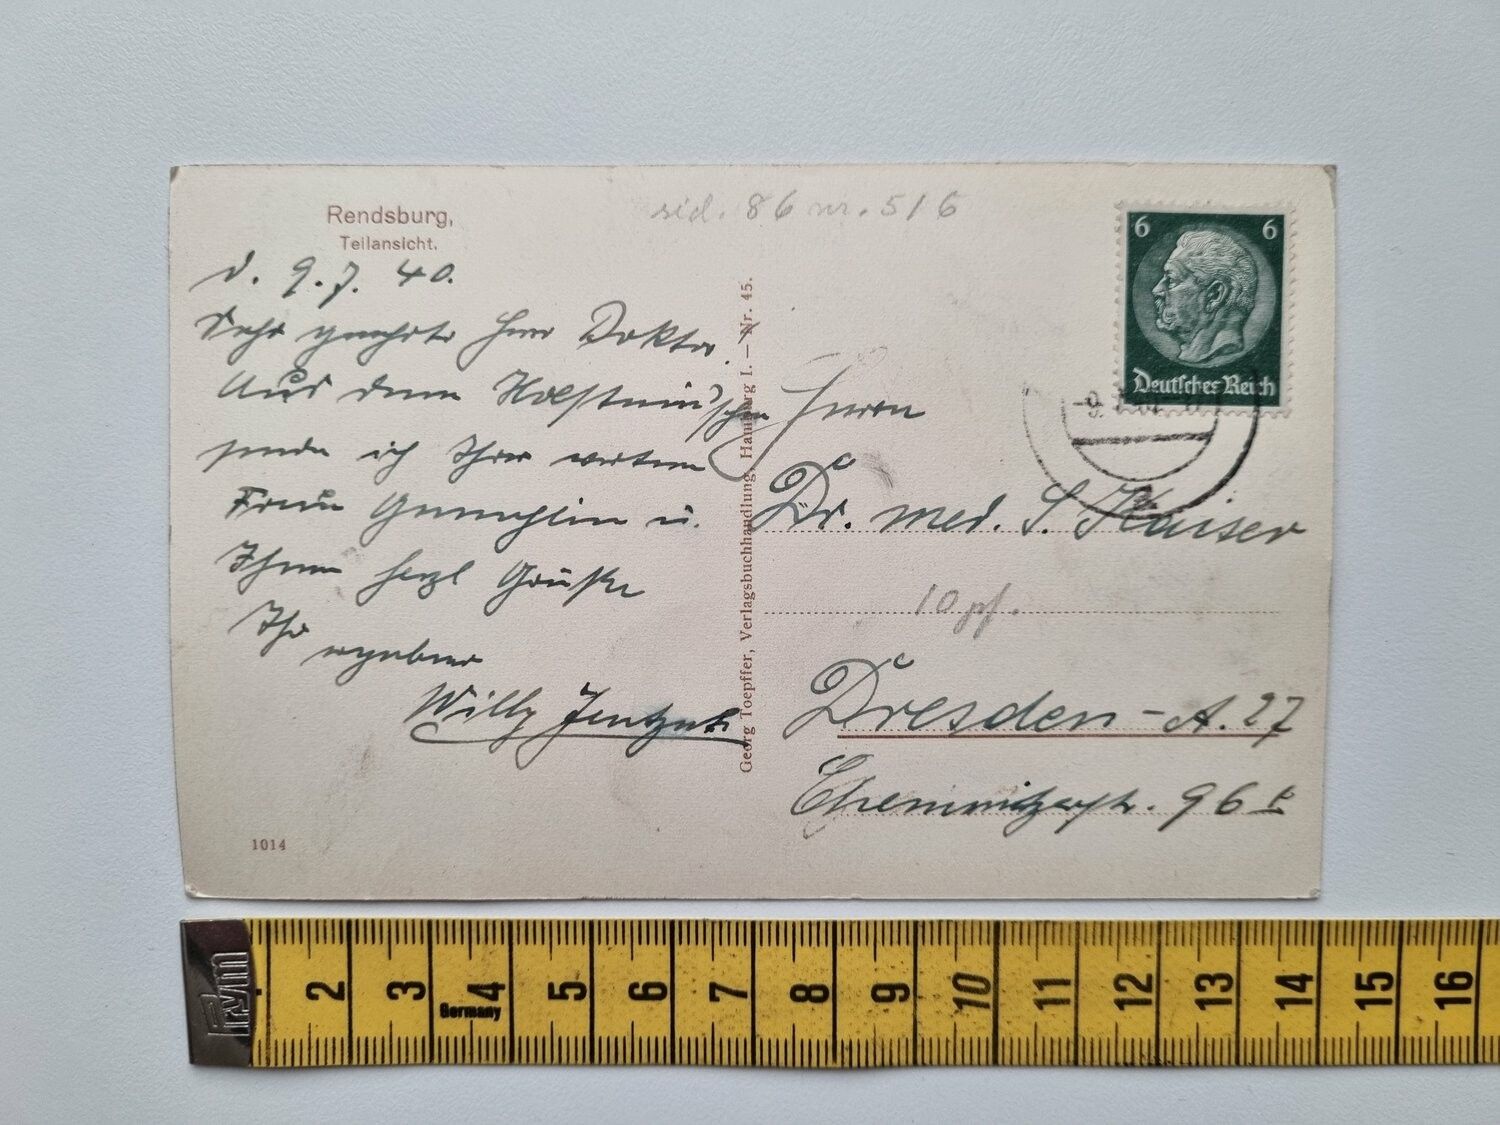 Rendsburg,
Teilansicht.
d. 9.7.40.
Sehr geehrter Herr Doktor!
Aus dem Holsteinischen
sende ich Ihrer werten
Frau Gemahlin u.
Ihnen herzl Grüße
Ihr ergebener
Willy
1014
Georg Toepffer, Verlagsbuchhandlung, Hamburg I. — Nr. 45.
sid. 86 nr. 516
6 6
Deutsches Reich
Herrn
Dr. med. S. Kaiser
10 pf.
Dresden - A. 27
Chemnitzerstr. 96
Prym
Germany
2 3 4 5 6 7 8 9 10 11 12 13 14 15 16